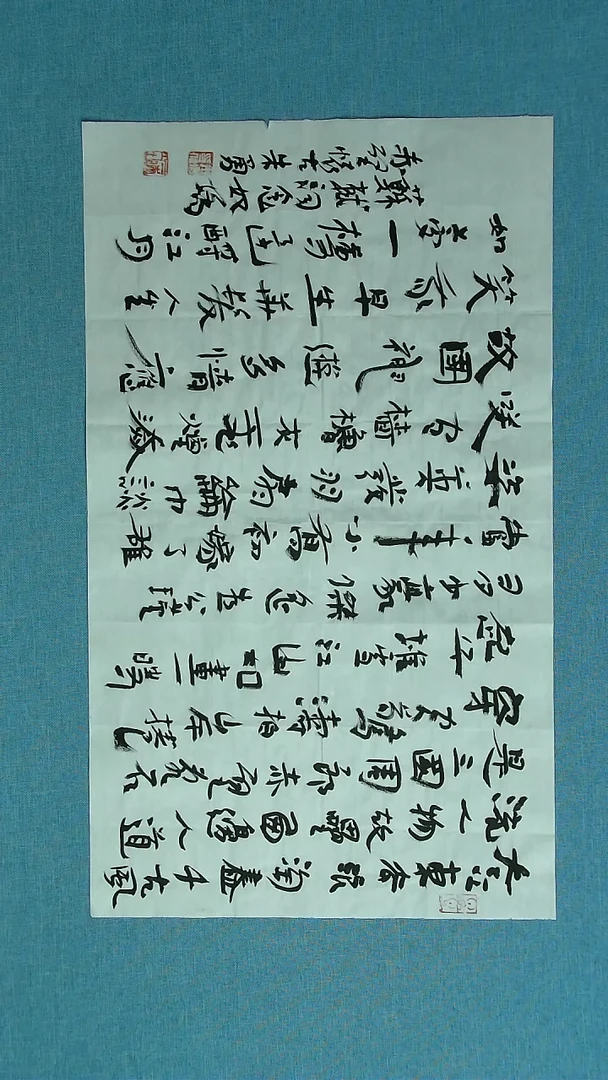 大江東去浪淘盡千古風
流人物故壘西邊人道
是三國周郎赤壁亂石
穿空驚濤拍岸捲
起千堆雪江山如畫一時
多少豪傑遙想公瑾
當年小喬初嫁了雄
姿英發羽扇綸巾談
咲間檣櫓灰飛煙滅
故國神遊多情應
笑我早生華髮人生
如夢一樽還酹江月
蘇軾詞念奴嬌
赤壁懷古朱勇